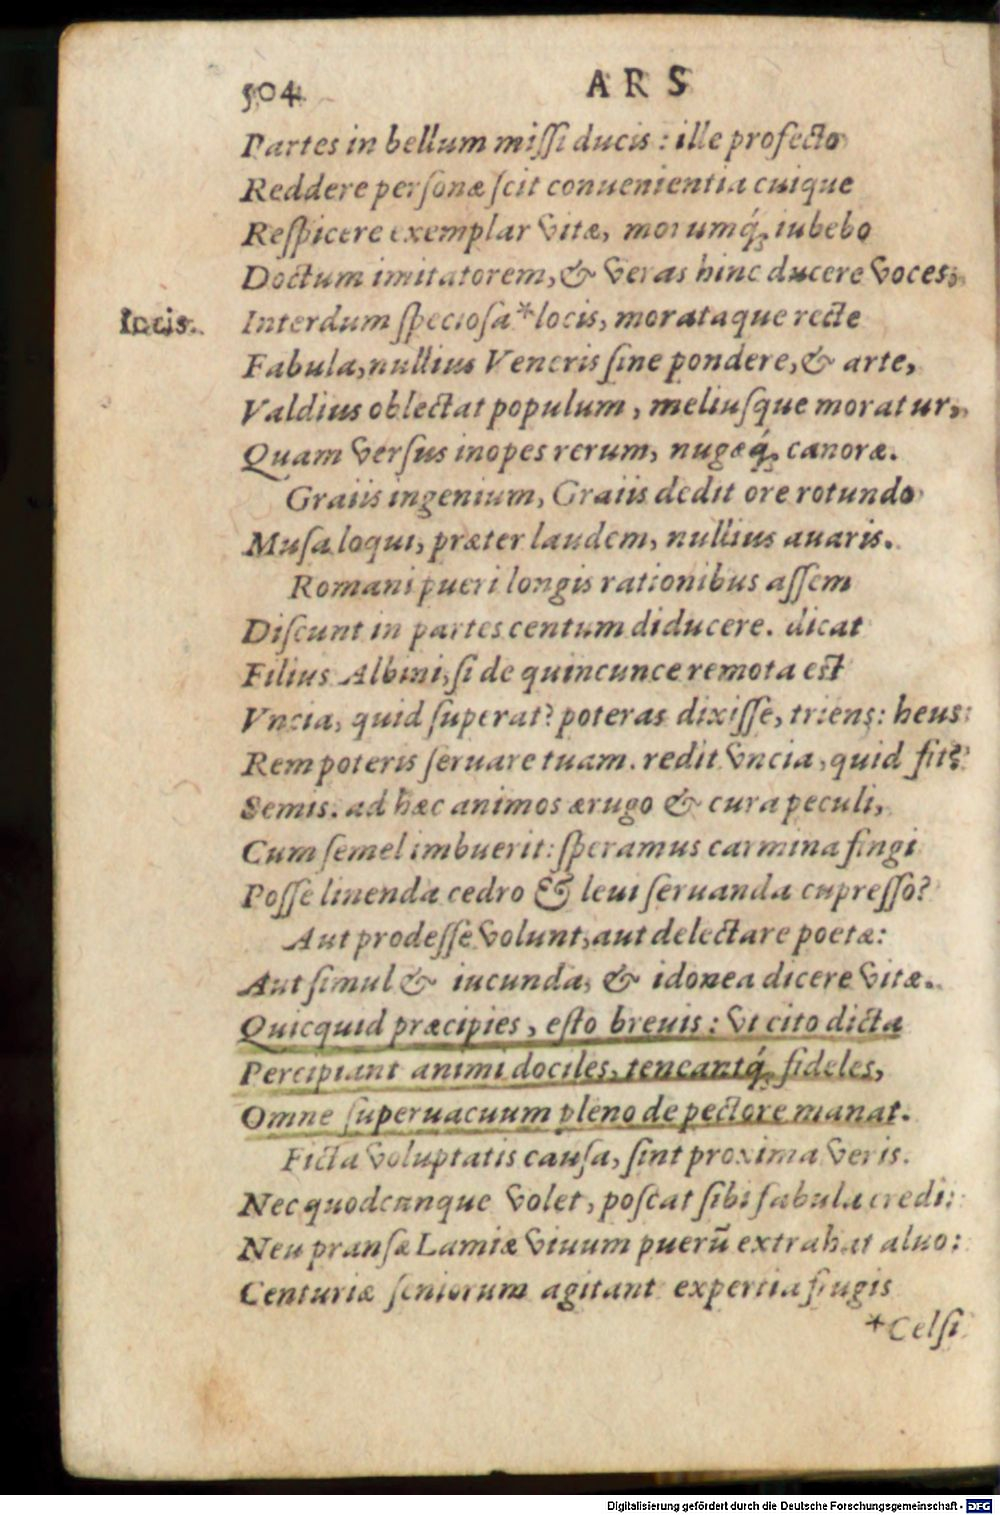 504 ARS
Partes in bellum missi ducis : ille profecto
Reddere personæ scit conuenientia cuique
Respicere exemplar vitæ, morumq́; iubebo
Doctum imitatorem, & veras hinc ducere voces,
Interdum speciosa *locis, morataque recte
Fabula, nullius Veneris sine pondere, & arte,
Valdius oblectat populum, meliusque moratur,
Quam versus inopes rerum, nugæq́; canoræ.
Graiis ingenium, Graiis dedit ore rotundo
Musa loqui, præter laudem, nullius auaris.
Romani pueri longis rationibus assem
Discunt in partes centum diducere. dicat
Filius Albini, si de quincunce remota est
Vncia, quid superat? poteras dixisse, triens: heus:
Rem poteris seruare tuam. redit vncia, quid fit?
Semis. ad hæc animos ærugo & cura peculi,
Cum semel imbuerit: speramus carmina fingi
Posse linenda cedro & leui seruanda cupresso?
Aut prodesse volunt, aut delectare poetæ:
Aut simul & iucunda, & idonea dicere vitæ.
Quicquid præcipies, esto breuis : vt cito dicta
Percipiant animi dociles, teneantq́; fideles,
Omne superuacuum pleno de pectore manat.
Ficta voluptatis causa, sint proxima veris.
Nec quodcunque volet, poscat sibi fabula credi:
Neu pransæ Lamiæ viuum puerū extrahat aluo:
Centuriæ seniorum agitant expertia frugis
*Celsi
Digitalisierung gefördert durch die Deutsche Forschungsgemeinschaft - DFG